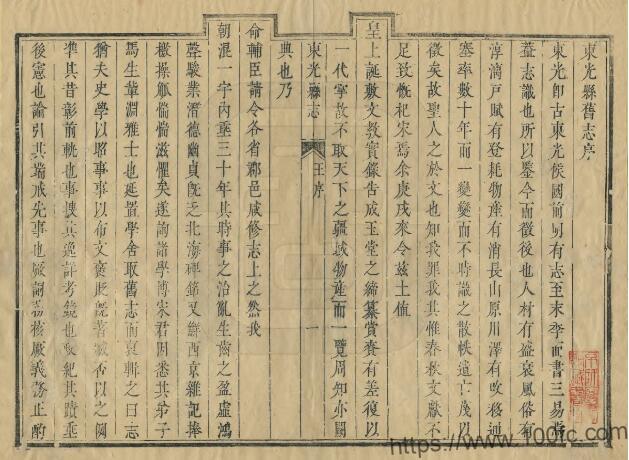 東光縣舊志序
東光即古東光侯國前明有志至末季而書三易焉
蓋志識也所以鑒今而徵後也人材有盛衰風俗有
淳漓戸賦有登耗物産有消長山原川澤有改移通
塞率數十年而一變變而不時識之散帙遺亡茂以
徵矣故聖人之於文也知我罪我其惟春秋文獻不
足致慨杞宋焉余庚戌來令兹土值
皇上誕敷文教實錄告成玉堂之締纂賞賚有差復以
一代寧故不取天下之疆域物産而一覽周知亦闕
典也乃
東光縣志
王序
一
命輔臣請令各省郡邑咸修志上之然我
朝混一宇内垂三十年其時事之治亂生齒之盈虛鴻
聲駿業潛德幽貞旣乏北海裨錦又鮮西京雜記捧
檄操觚惴惴滋懼矣遂詢諸學博宋君因悉其步子
馬生葷淵雅士也延置學舍取舊志而哀輯之曰志
猶夫史學以昭事事以布文褒貶旣著臧否以之倶
準其昔彰前軌也事搜其逸詳考鏡也政紀其蹟垂
後憲也論引其端戒先事也嚴詞務核厥義務止酌
https://www.100tc.com